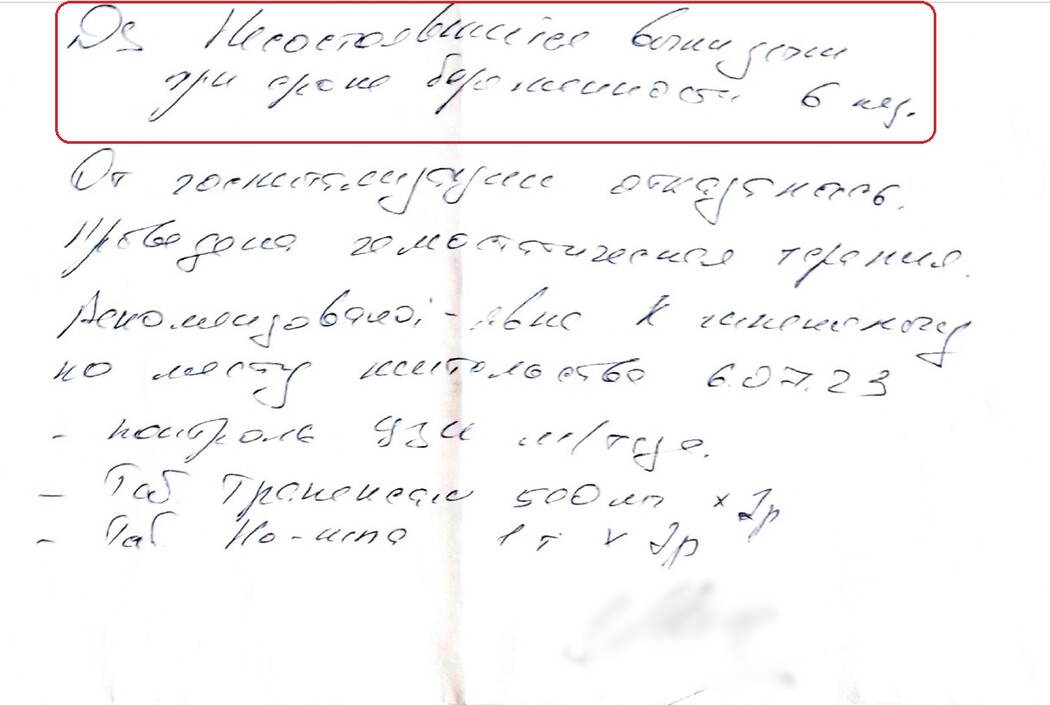 Ds Несостоявшийся выкидыш
при сроке беременности 6 нед.
От госпитализации отказалась.
Проведена гемостатическая терапия.
Рекомендовано: - явка к гинекологу
по месту жительства 6.07.23
- контроль УЗИ м/таза.
- Таб Транексам 500мг х 3р
- Таб Но-шпа 1т х 3р